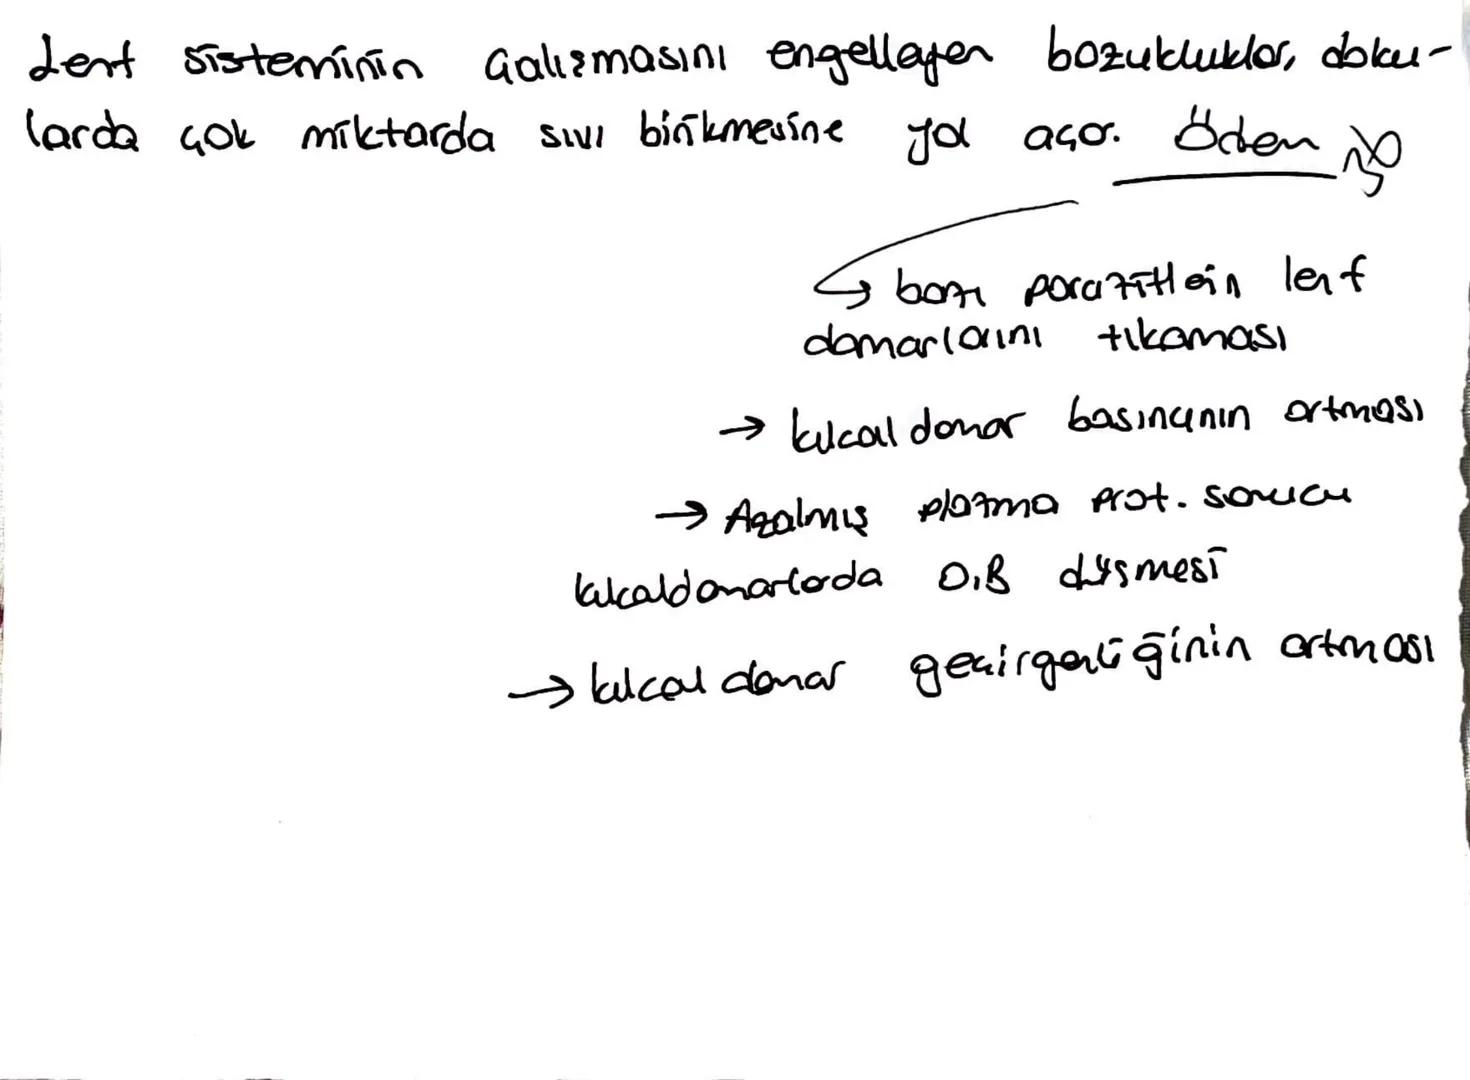 Lenf sisteminin çalışmasını engelleyen bozukluklar, doku-
larda çok miktarda sıvı birikmesine yol açar. Ödem
→ bazı parazitlerin lenf
damarlarını tıkaması
→ kılcal damar basıncının artması
→ Azalmış plazma prot. sonucu
kılcaldamarlarda O.B düşmesi
→ kılcal damar geçirgenliğinin artması